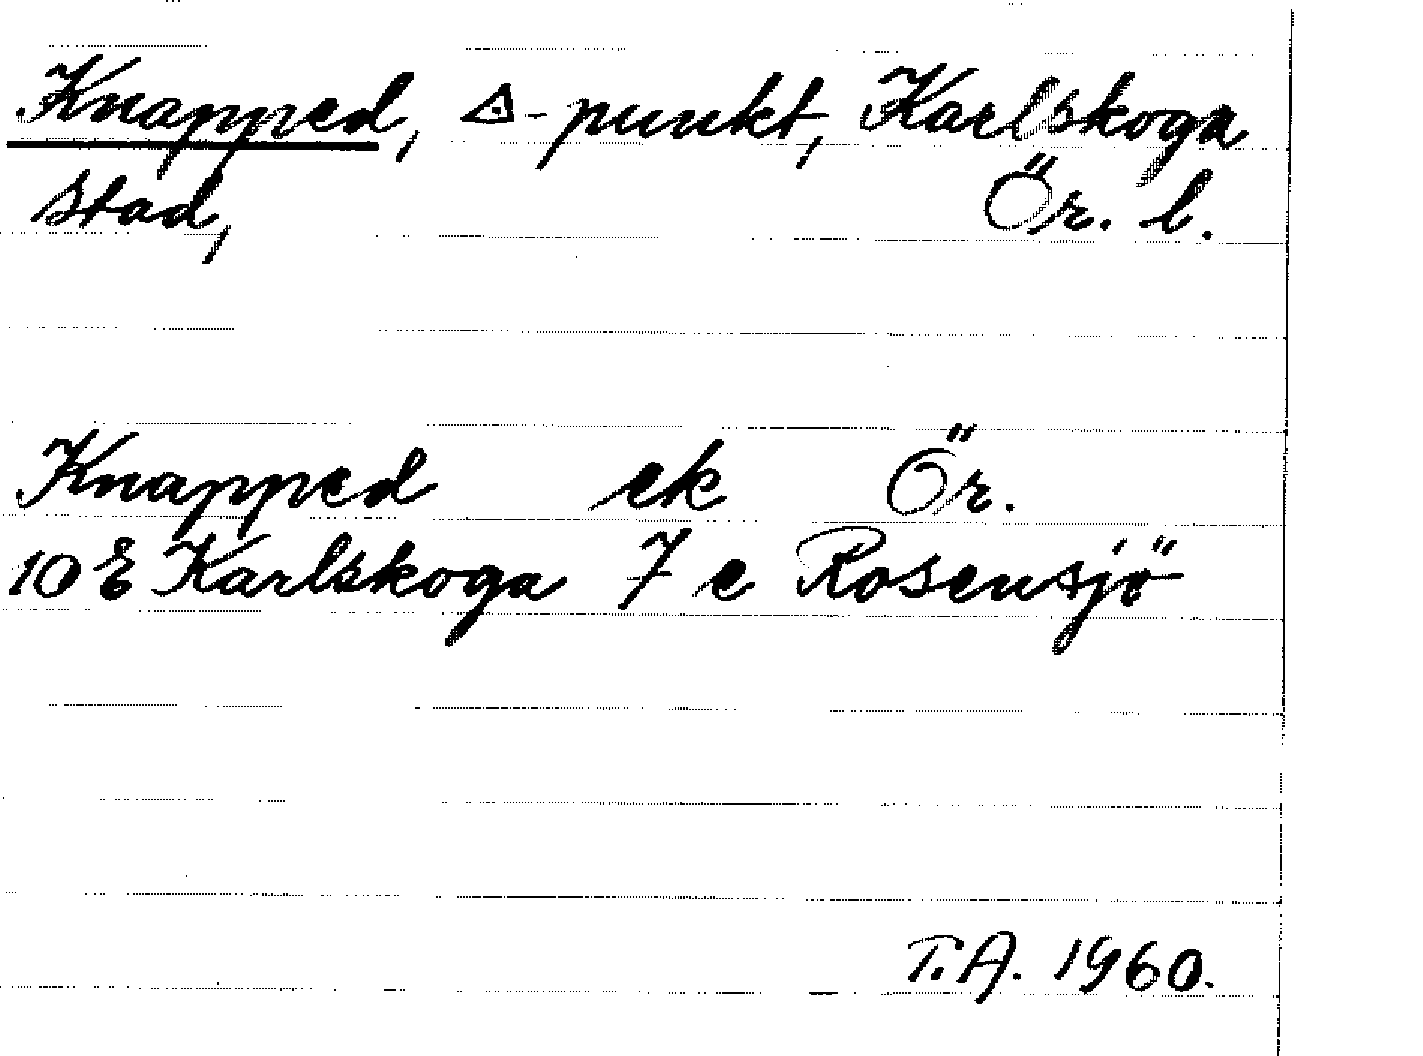 Knapped, △-punkt, Karlskoga
stad, Ör. l.
Knapped ek Ör.
10 E Karlskoga 7 e Rosensjö
T.A. 1960.